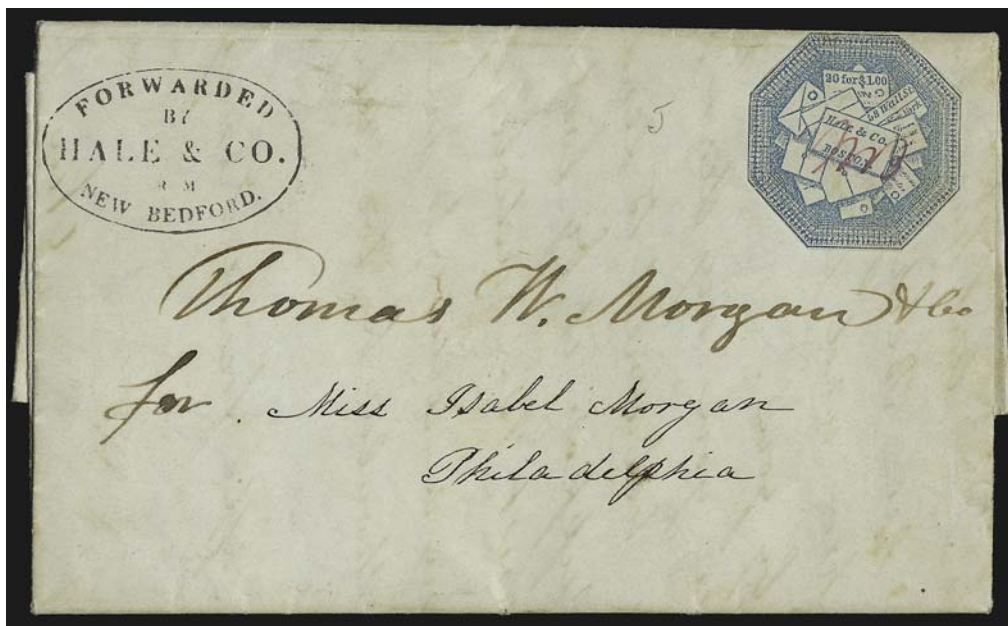 FORWARDED
BY
HALE & CO.
NEW BEDFORD.
5
20 for $1.00
58 Wall St
New York
HALE & Co.
BOSTON.
Thomas W. Morgan & Co
for Miss Isabel Morgan
Philadelphia